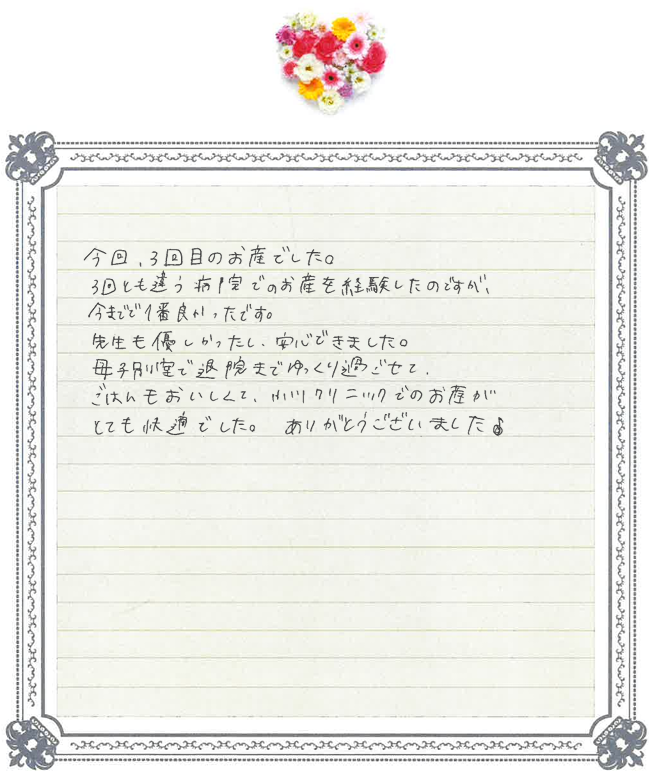 今回、3回目のお産でした。
3回とも違う病院でのお産を経験したのですが、
今までで1番良かったです。
先生も優しかったし、安心できました。
母子別室で退院までゆっくり過ごせて、
ごはんもおいしくて、小川クリニックでのお産が
とても快適でした。 ありがとうございました♪